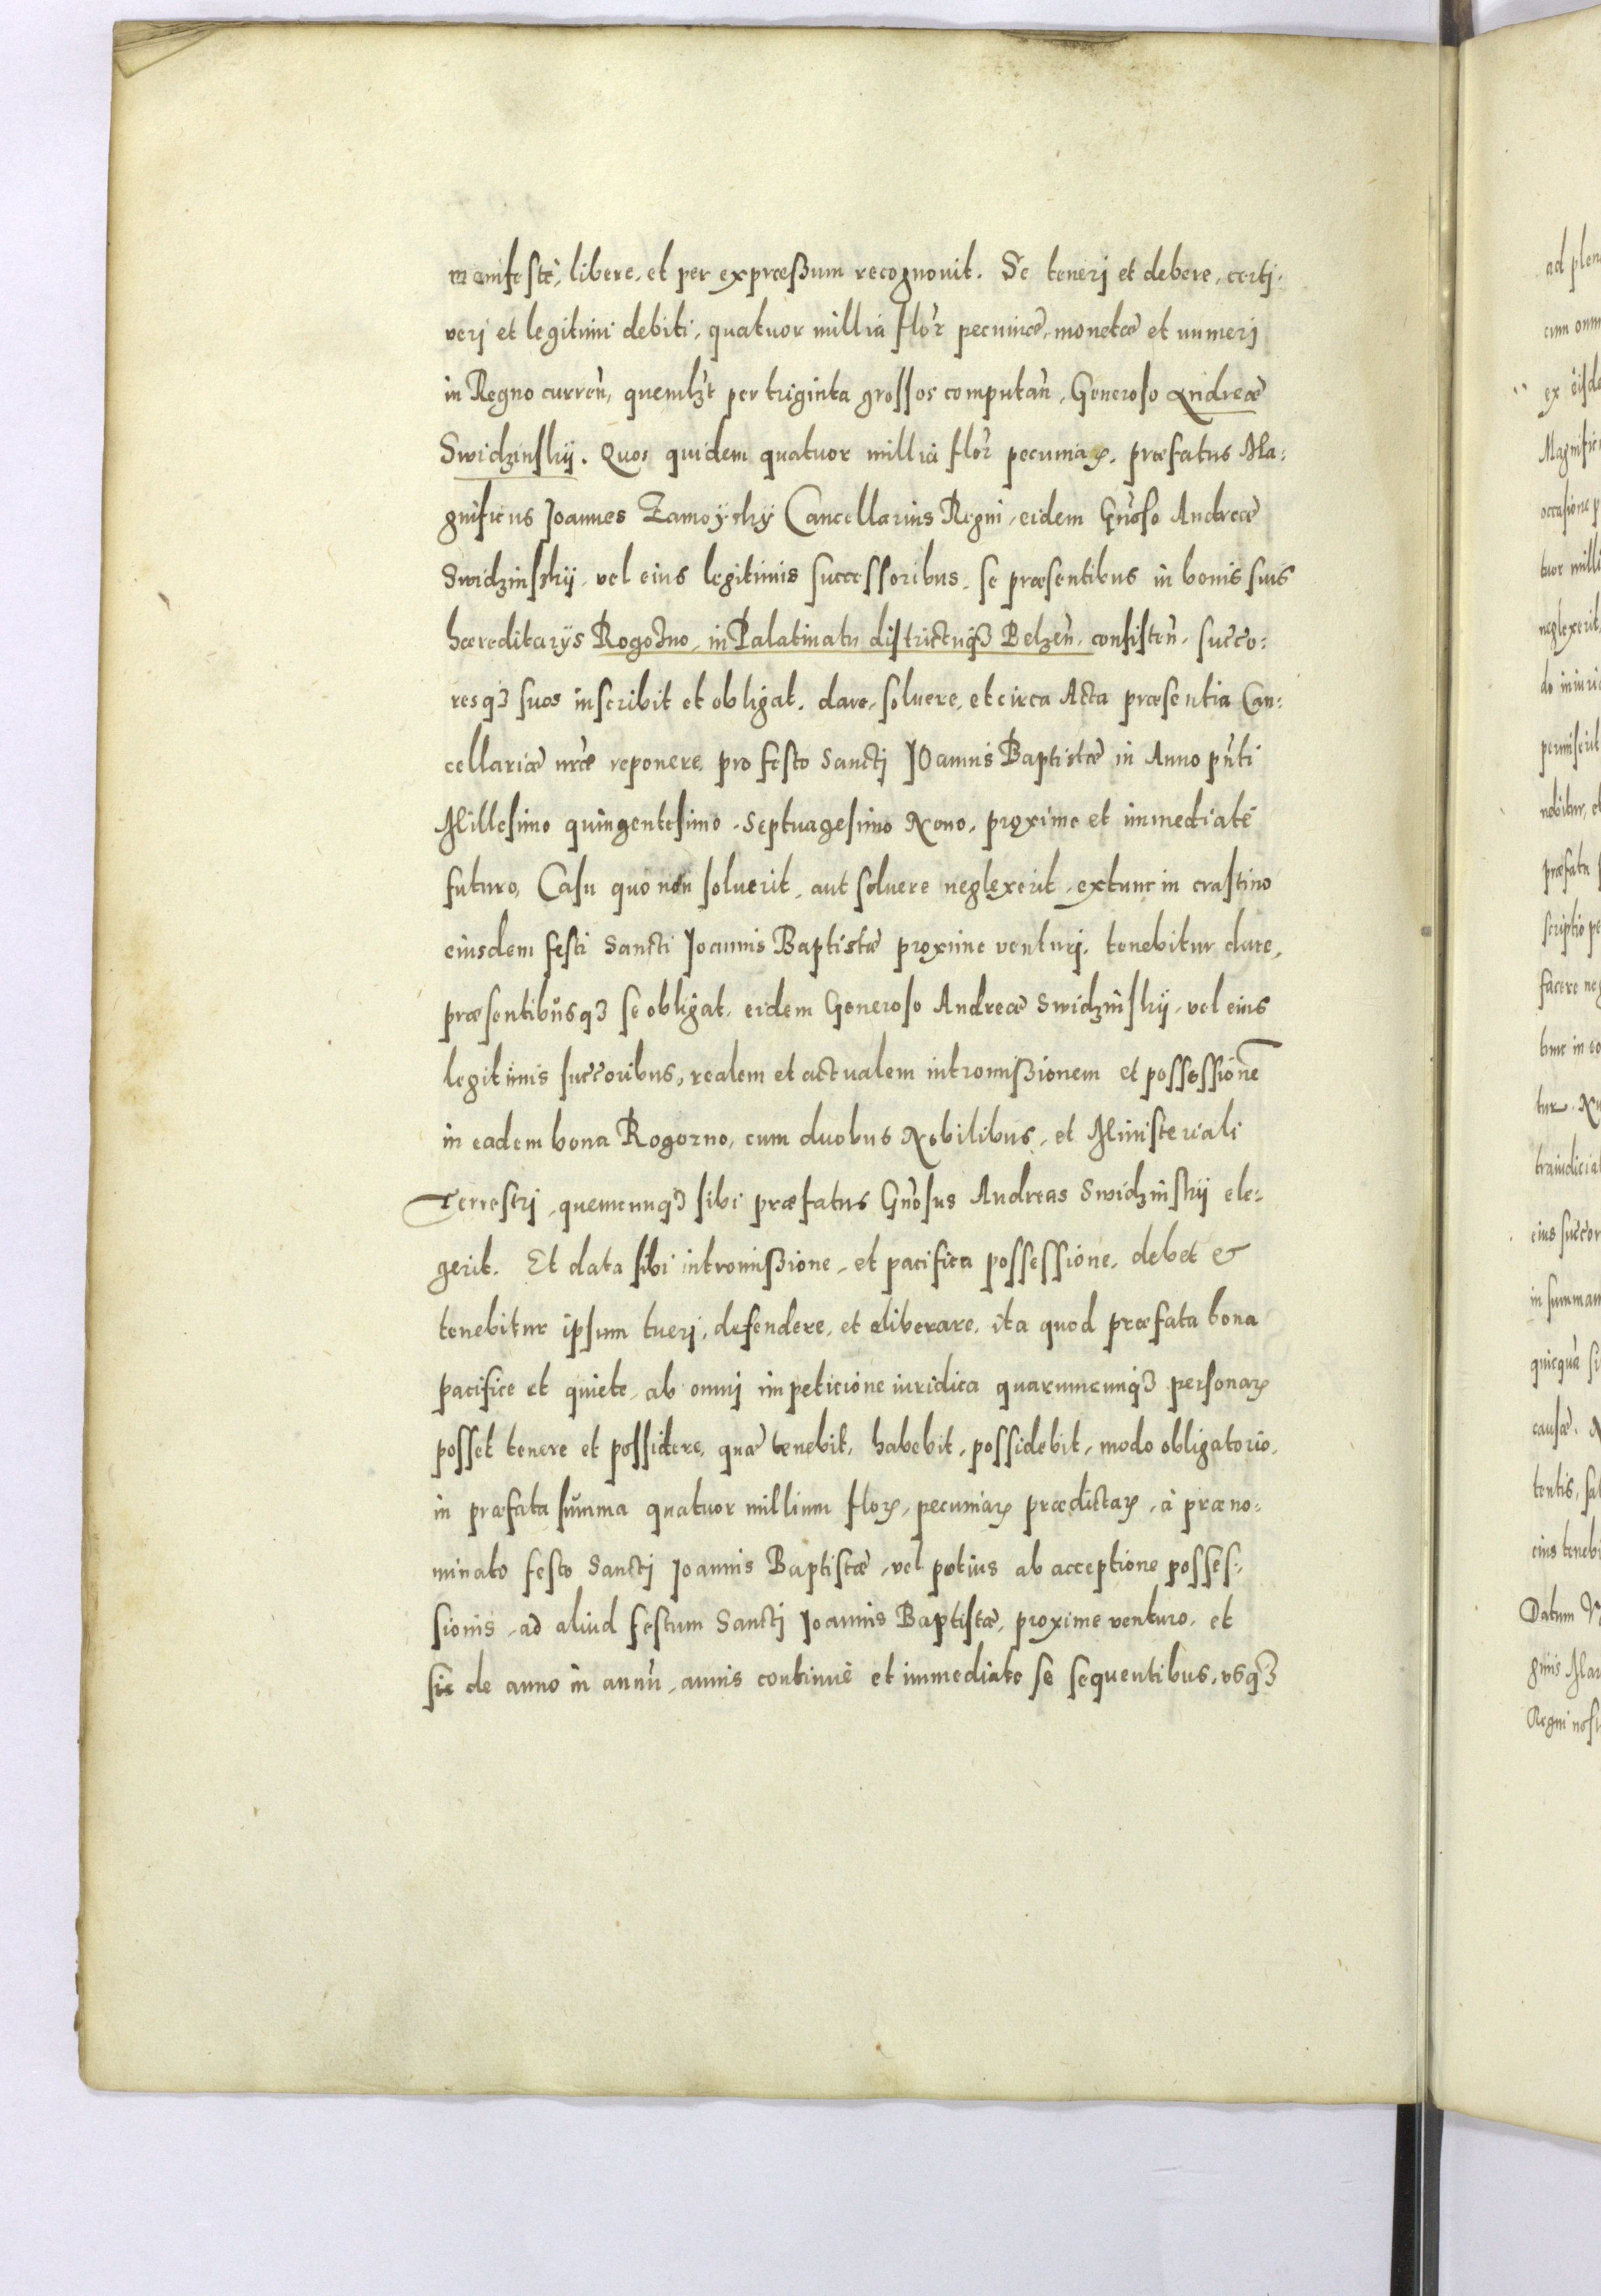 manifestè, libere, et per expræßum recognouit. Se tenerj et debere, certj,
verj et legitimi debiti, quatuor millia flor̃ pecuniæ, monetæ et numerj
in Regno curreñ, quemlzt per triginta grossos computañ, Generoso Andreæ
Swidzinskÿ. Quos quidem quatuor millia flor̃ pecuniaꝝ, præfatus Ma:
gnificus Joannes Zamoÿskÿ Cancellarius Regni, eidem Gnõso Andreæ
Swidzinskÿ, vel eius legitimis successoribus, se præsentibus in bonis suis
hæreditarÿs Rogozno, in Palatinatu districtuqꝫ Belzeñ, consisteñ, succo:
resqꝫ suos inscribit et obligat, dare, soluere, et circa Acta præsentia Can:
cellariæ nr̃æ reponere, pro festo Sanctj JOannis Baptistæ in Anno pñti
Millesimo quingentesimo Septuagesimo Nono, proxime et immediatè
futuro, Casu quo non soluerit, aut soluere neglexerit, extunc in crastino
eiusdem festi Sancti Joannis Baptistæ proxime venturj, tenebitur dare,
præsentibusqꝫ se obligat, eidem Generoso Andreæ Swidzinskÿ, vel eius
legitimis succoribus, realem et actualem intromißionem et possessionẽ
in eadem bona Rogozno, cum duobus Nobilibus, et Ministeriali
Terrestrj, quemcunqꝫ sibi præfatus Gnõsus Andreas Swidzinskÿ ele:
gerit. Et data sibi intromißione, et pacifica possessione, debet &
tenebitur ipsum tuerj, defendere, et eliberare, ita quod præfata bona
pacifice et quiete, ab omnj impeticione iuridica quarumcunqꝫ personaꝝ
posset tenere et possidere, quæ tenebit, habebit, possidebit, modo obligatorio,
in præfata summa quatuor millium floꝝ, pecuniaꝝ prædictaꝝ, à præno:
minato festo Sanctj Joannis Baptistæ, vel potius ab acceptione posses:
sionis, ad aliud festum Sanctj Joannis Baptistæ, proxime venturo, et
sic de anno in annũ, annis continuè et immediate se sequentibus, vsqꝫ